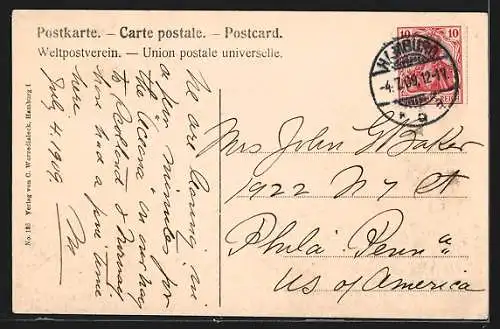 Postkarte. – Carte postale. – Postcard.
Weltpostverein. – Union postale universelle.
10 10
HAMBURG
-4.7.09. 12-1
REICH
We are leaving in
a few minutes for
the Oceana in our way
to Scotland & Norway
have had a fine time
here
July 4. 1909.
Mrs John G Baker
1922 N 7 St
Phila Penna
US of America
No. 185 Verlag von C. Hamburg 1